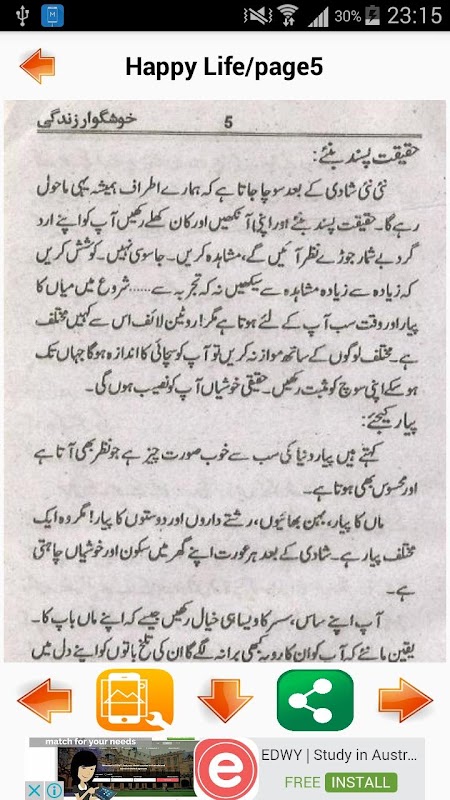 30% 23:15
Happy Life/page5
خوشگوار زندگی 5
حقیقت پسند بنئے:
نئی نئی شادی کے بعد سوچا جاتا ہے کہ ہمارے اطراف ہمیشہ یہی ماحول
رہے گا۔ حقیقت پسند بنئے اور اپنی آنکھیں اور کان کھلے رکھیں آپ کو اپنے ارد
گرد بے شمار جوڑے نظر آئیں گے، مشاہدہ کریں۔ جاسوسی نہیں۔ کوشش کریں
کہ زیادہ سے زیادہ مشاہدہ سے سیکھیں نہ کہ تجربہ سے ...... شروع میں میاں کا
پیار اور وقت سب آپ کے لئے ہوتا ہے مگر! روٹین لائف اس سے کہیں مختلف
ہے۔ مختلف لوگوں کے ساتھ موازنہ کریں تو آپ کو سچائی کا اندازہ ہوگا جہاں تک
ہو سکے اپنی سوچ کو مثبت رکھیں۔ حقیقی خوشیاں آپ کو نصیب ہوں گی۔
پیار کیجئے:
کہتے ہیں پیار دنیا کی سب سے خوب صورت چیز ہے جو نظر بھی آتا ہے
اور محسوس بھی ہوتا ہے۔
ماں کا پیار، بہن بھائیوں، رشتے داروں اور دوستوں کا پیار! مگر وہ ایک
مختلف پیار ہے۔ شادی کے بعد ہر عورت اپنے گھر میں سکون اور خوشیاں چاہتی
ہے۔
آپ اپنے ساس، سسر کا ویسا ہی خیال رکھیں جیسے کہ اپنے ماں باپ کا۔
یقین مانئے کہ آپ کو ان کا رویہ کبھی برا نہ لگے گا ان کی تلخ باتوں کو اپنے دل میں
match for your needs
EDWY | Study in Austr...
FREE INSTALL